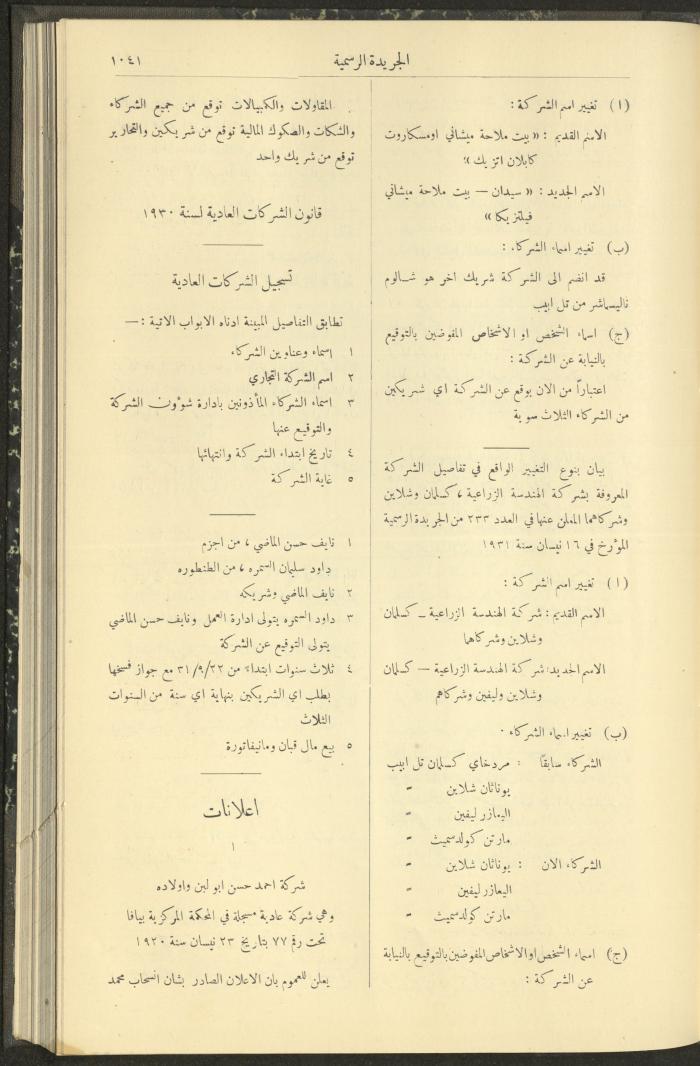 الجريدة الرسمية
١٠٤١
(ا) تغيير اسم الشركة :
الاسم القديم : « بيت ملاحة ميشاني اومسكاروت
كابلان اتزيك »
الاسم الجديد : « سيدان — بيت ملاحة ميشاني
فيلتزيكا »
(ب) تغيير اسماء الشركاء :
قد انضم الى الشركة شريك اخر هو شالوم
ناليسماشر من تل ابيب
(ج) اسماء الشخص او الاشخاص المفوضين بالتوقيع
بالنيابة عن الشركة :
اعتباراً من الان يوقع عن الشركة اي شريكين
من الشركاء الثلاث سوية
بيان بنوع التغيير الواقع في تفاصيل الشركة
المعروفة بشركة الهندسة الزراعية ، كسلمان وشلاين
وشركاهما المعلن عنها في العدد ٢٣٣ من الجريدة الرسمية
المؤرخ في ١٦ نيسان سنة ١٩٣١
(ا) تغيير اسم الشركة :
الاسم القديم : شركة الهندسة الزراعية ــ كسلمان
وشلاين وشركاهما
الاسم الجديد : شركة الهندسة الزراعية — كسلمان
وشلاين وليفين وشركاهم
(ب) تغيير اسماء الشركاء .
الشركاء سابقاً : مردخاي كسلمان تل ابيب
يوناثان شلاين -
اليعازر ليفين -
مارتن كولدسميث -
الشركاء الان : يوناثان شلاين -
اليعازر ليفين -
مارتن كولدسميث -
(ج) اسماء الشخص او الاشخاص المفوضين بالتوقيع بالنيابة
عن الشركة :
المقاولات والكمبيالات توقع من جميع الشركاء
والشكات والصكوك المالية توقع من شريكين والتحارير
توقع من شريك واحد
قانون الشركات العادية لسنة ١٩٣٠
تسجيل الشركات العادية
تطابق التفاصيل المبينة ادناه الابواب الاتية : —
١ اسماء وعناوين الشركاء
٢ اسم الشركة التجاري
٣ اسماء الشركاء المأذونين بادارة شؤون الشركة
والتوقيع عنها
٤ تاريخ ابتداء الشركة وانتهائها
٥ غاية الشركة
١ نايف حسن الماضي ، من اجزم
داود سليمان السمره ، من الطنطوره
٢ نايف الماضي وشريكه
٣ داود السمره يتولى ادارة العمل ونايف حسن الماضي
يتولى التوقيع عن الشركة
٤ ثلاث سنوات ابتداء من ٣١/٩/٢٢ مع جواز فسخها
بطلب اي الشريكين بنهاية اي سنة من السنوات
الثلاث
٥ بيع مال قبان ومانيفاتورة
اعلانات
١
شركة احمد حسن ابو لبن واولاده
وهي شركة عادية مسجلة في المحكمة المركزية بيافا
تحت رقم ٧٧ بتاريخ ٢٣ نيسان سنة ١٩٢٠
يعلن للعموم بان الاعلان الصادر بشان انسحاب محمد